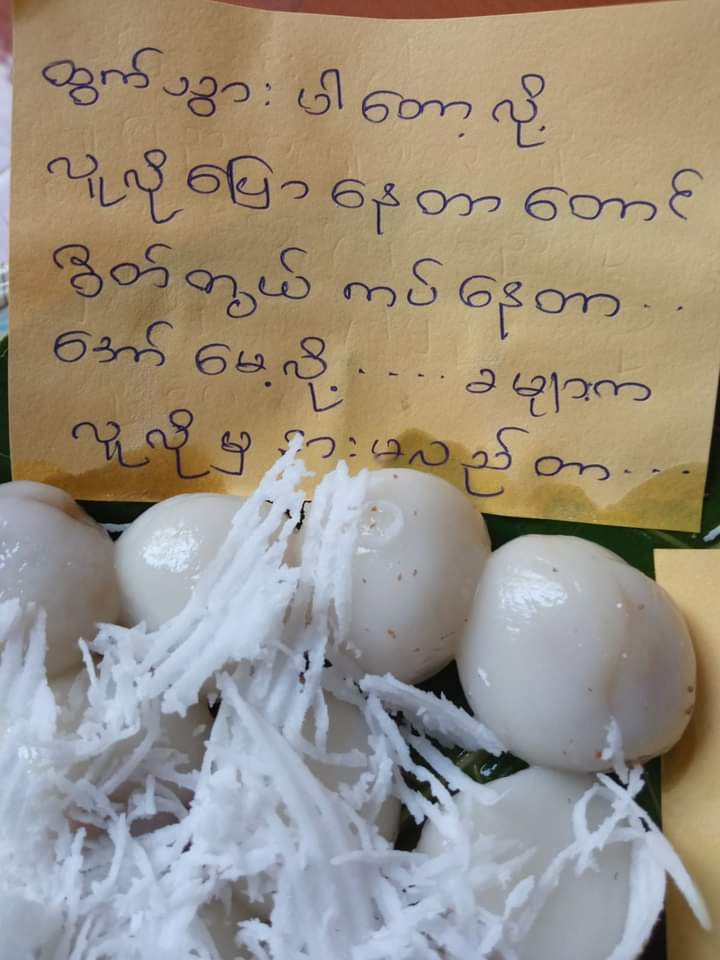 ထွက်သွား ပါ တော့ လို့
လူလို ပြော နေတာ တောင်
ဒိတ်တွယ် ကပ် နေတာ . .
အော် မေ့လို့ . . . . . ခမျာ့က
လူလို မှ နားမလည် တာ . . .